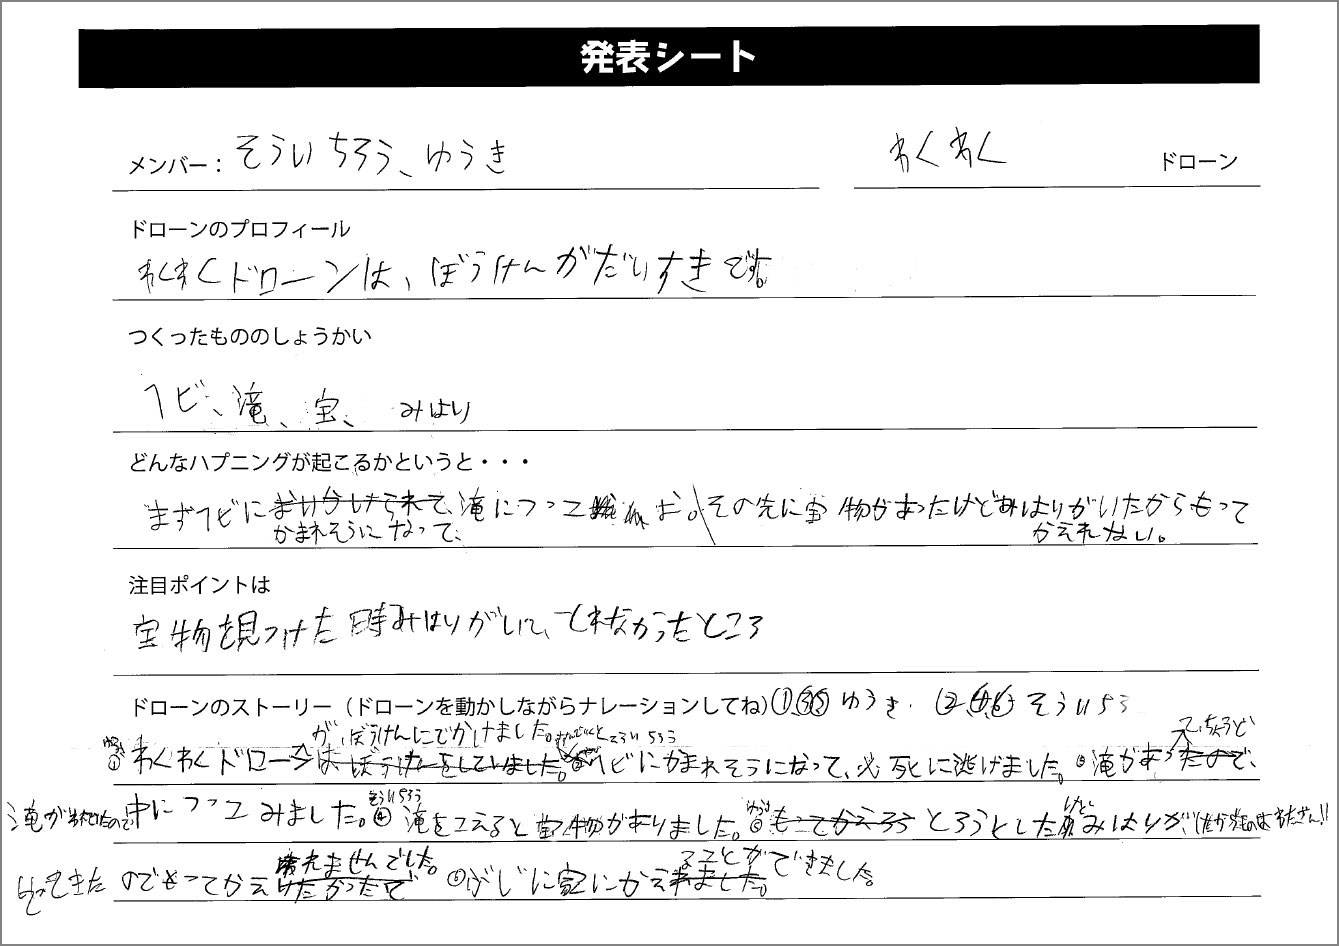 発表シート
メンバー： そういちろう、ゆうき
わくわく ドローン
ドローンのプロフィール
わくわくドローンは、ぼうけんがだいすきです。
つくったもののしょうかい
ヘビ、滝、宝、みはり
どんなハプニングが起こるかというと・・・
まずヘビにおいかけられて、滝につっこ その先に宝物があったけどみはりがいたからもって
かまれそうになって、 かえれない。
注目ポイントは
宝物を見つけた時みはりがいて、とれなかったところ
ドローンのストーリー（ドローンを動かしながらナレーションしてね）①③⑤ ゆうき. ②④⑥ そういちろ
が、ぼうけんにでかけました。 そういちろう で、ちょうど
ゆうき① わくわくドローンはぼうけんをしていました。②ヘビにかまれそうになって、必死に逃げました。③滝があったので、
滝が 中につっこみました。④そういちろう 滝をこえると宝物がありました。ゆうき⑤もってかえろうとろうとした みはりが、
ませんでした。 ることができました。
いってきたのでもってかえ ⑥ぶじに家にかえれました。